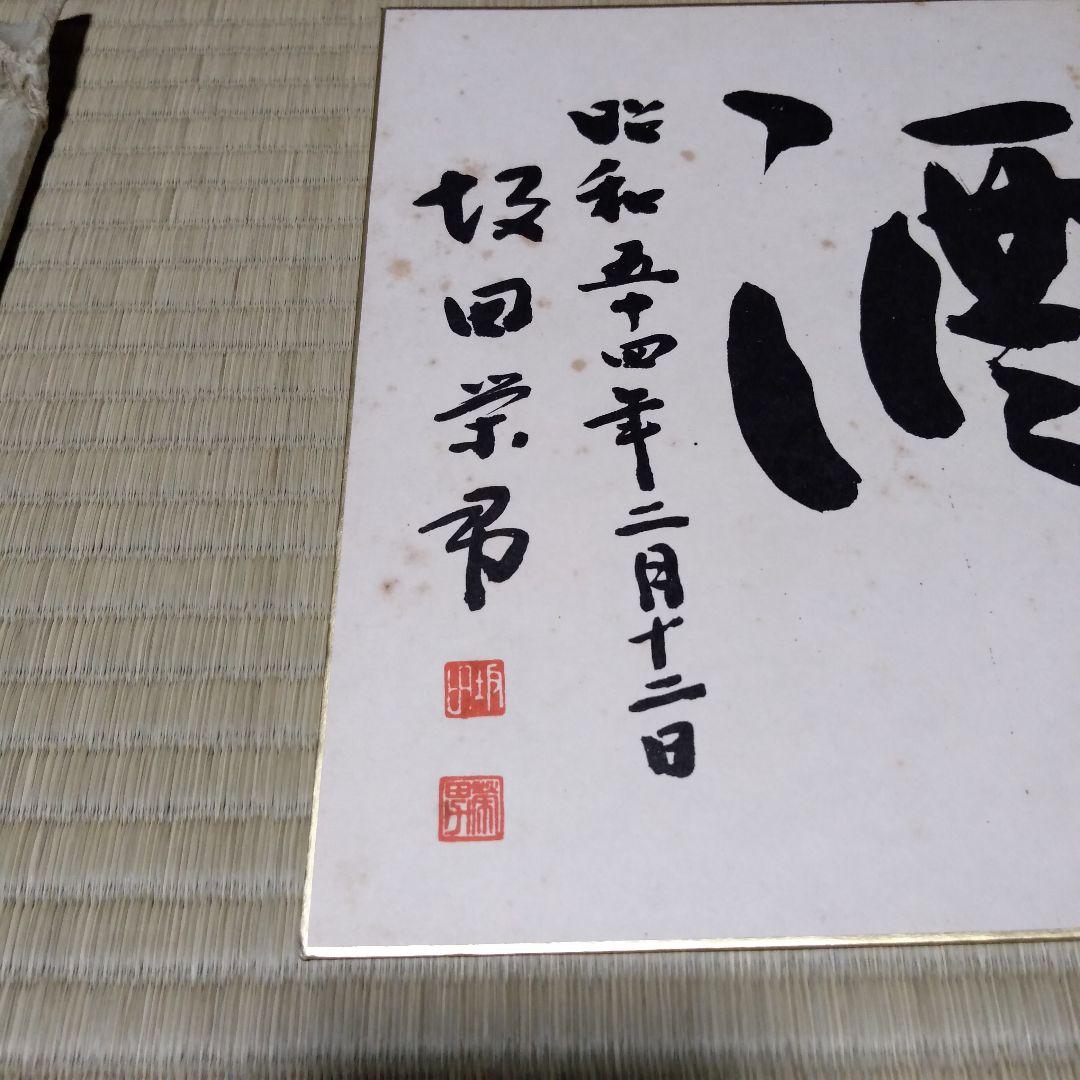 昭和五十四年二月十二日
坂田栄男
坂田
榮男